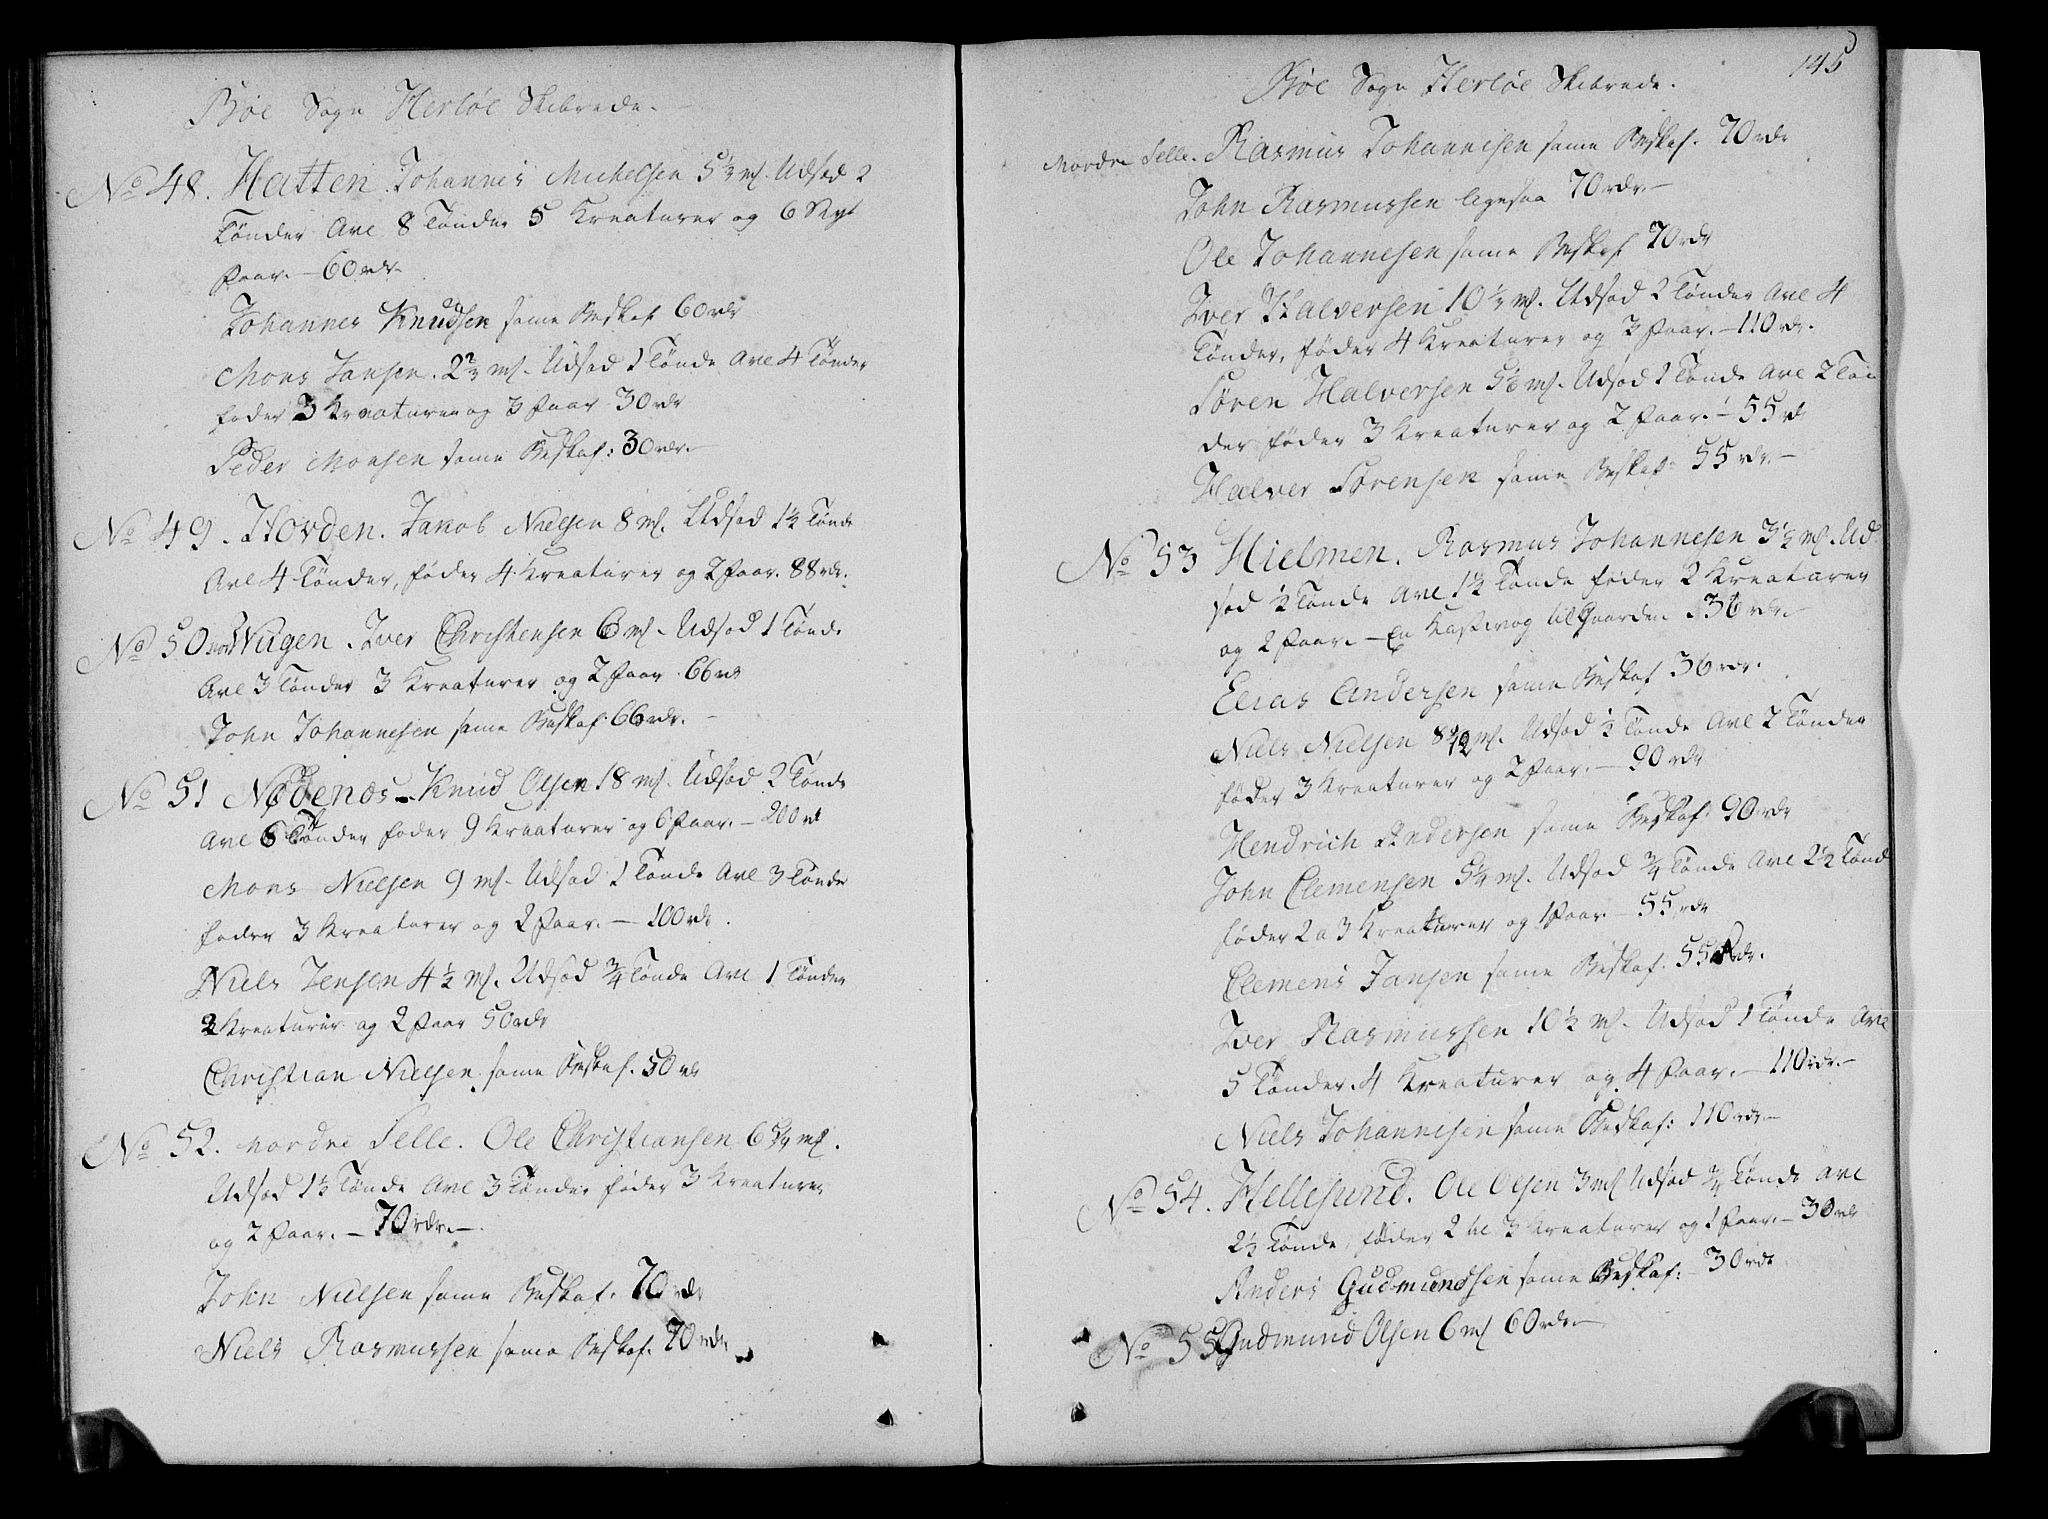 Bøe Sogn Herløe Skibrede.
No 48. Hatten. Johannes Michelsen 5½ mƖ. Udsæd 2
Tønder Avl 8 Tønder 5 Kreaturer og 6
Faar. – 60 rdr.
Johannes Knudsen same Beskaf. 60 rdr
Mons Jansen. 2⅔ mƖ. Udsæd 1 Tønde Avl 4 Tønder
føder 3 Kreaturer og 3 Faar 30 rdr
Peder Monsen same Beskaf: 30 rdr.
No 49. Hovden. Jakob Nielsen 8 mƖ. Udsæd 1½ Tønde
Avl 4 Tønder, føder 4 Kreaturer og 2 Faar. 88 rdr.
No 50 Waagen. Iver Christensen 6 mƖ. Udsæd 1 Tønde
Avl 3 Tønder 3 Kreaturer og 2 Faar 66 rdr
John Johannesen same Beskaf. 66 rdr. –
No 51 Nødenæs – Knud Olsen 18 mƖ. Udsæd 2 Tønde
Avl 6 Tønder føder 9 Kreaturer og 6 Faar. – 200 rdr
Mons Nielsen 9 mƖ. Udsæd 1 Tønde Avl 3 Tønder
føder 3 Kreaturer og 2 Faar. – 100 rdr.
Niels Jensen 4½ mƖ. Udsæd ¾ Tønde Avl 1 Tønder
2 Kreaturer og 2 Faar 50 rdr
Christian Nielsen same Beskaf. 50 rdr
No 52. nordre Selle. Ole Christiansen 6 ¾ mƖ.
Udsæd 1½ Tønde Avl 3 Tønder føder 3 Kreaturer
og 2 Faar. – 70 rdr. –
John Nielsen same Beskaf. 70 rdr
Niels Rasmussen same Beskaf. 70 rdr.
145
Bøe Sogn Herløe Skibrede.
Nordre Selle. Rasmus Johannesen same Beskaf. 70 rdr
John Rasmussen ligesaa 70 rdr. –
Ole Johannesen same Beskaf. 70 rdr
Iver Halversen 10½ mƖ. Udsæd 2 Tønder Avl 4
Tønder, føder 4 Kreaturer og 3 Faar. – 110 rdr.
Søren Halversen 5 mƖ. Udsæd 1 Tønde Avl 2 Tøn
der føder 3 Kreaturer og 2 Faar. – 55 rdr
Halver Sørensen same Beskaf. 55 rdr. –
No 53 Hielmen. Rasmus Johannesen 3½ mƖ. Ud
sæd ½ Tønde Avl 1½ Tønde føder 2 Kreaturer
og 2 Faar. – En til Gaarden 36 rdr. –
Elias Andersen same Beskaf 36 rdr.
Niels Nielsen 8 mƖ. Udsæd ½ Tønde Avl 2 Tønder
føder 3 Kreaturer og 2 Faar. – 90 rdr
Hendrich Andersen same Beskaf. 90 rdr
John Clemensen 5¼ mƖ. Udsæd ¾ Tønde Avl 2½ Tønd
føder 2 a 3 Kreaturer og 1 Faar. – 55 rdr
Clemens Jansen same Beskaf. 55 rdr.
Iver Rasmussen 10½ mƖ. Udsæd 1 Tønde Avl
5 Tønder. 4 Kreaturer og 4 Faar. – 110 rdr. –
Niels Johannesen same Beskaf: 110 rdr –
No 54. Hellesund. Ole Olsen 3 mƖ Udsæd ¾ Tønde Avl
2½ Tønde, føder 2 til 3 Kreaturer og 1 Faar. – 30 rdr
Anders Gudmundsen same Beskaf: 30 rdr
No 55 Gudmund Olsen 6 mƖ 60 rdr. –